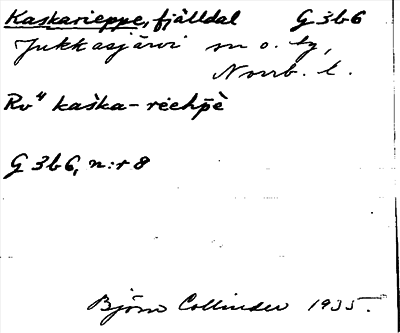 Kaskarieppe, fjälldal G 3b6
Jukkasjärvi sn o. tg,
Norrb. l.
Rv4 kaška-riehpē
G 3b6, n:r 8
Björn Collinder 1935.